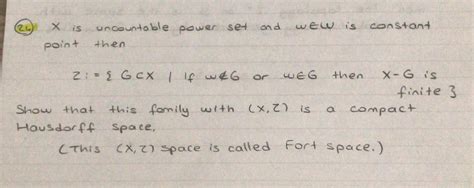 26) X is uncountable power set and w∈W is constant
point then
Z := { G⊂X | If w∉G or w∈G then X-G is
finite }
Show that this family with (X, Z) is a compact
Hausdorff space.
(This (X, Z) space is called Fort space.)